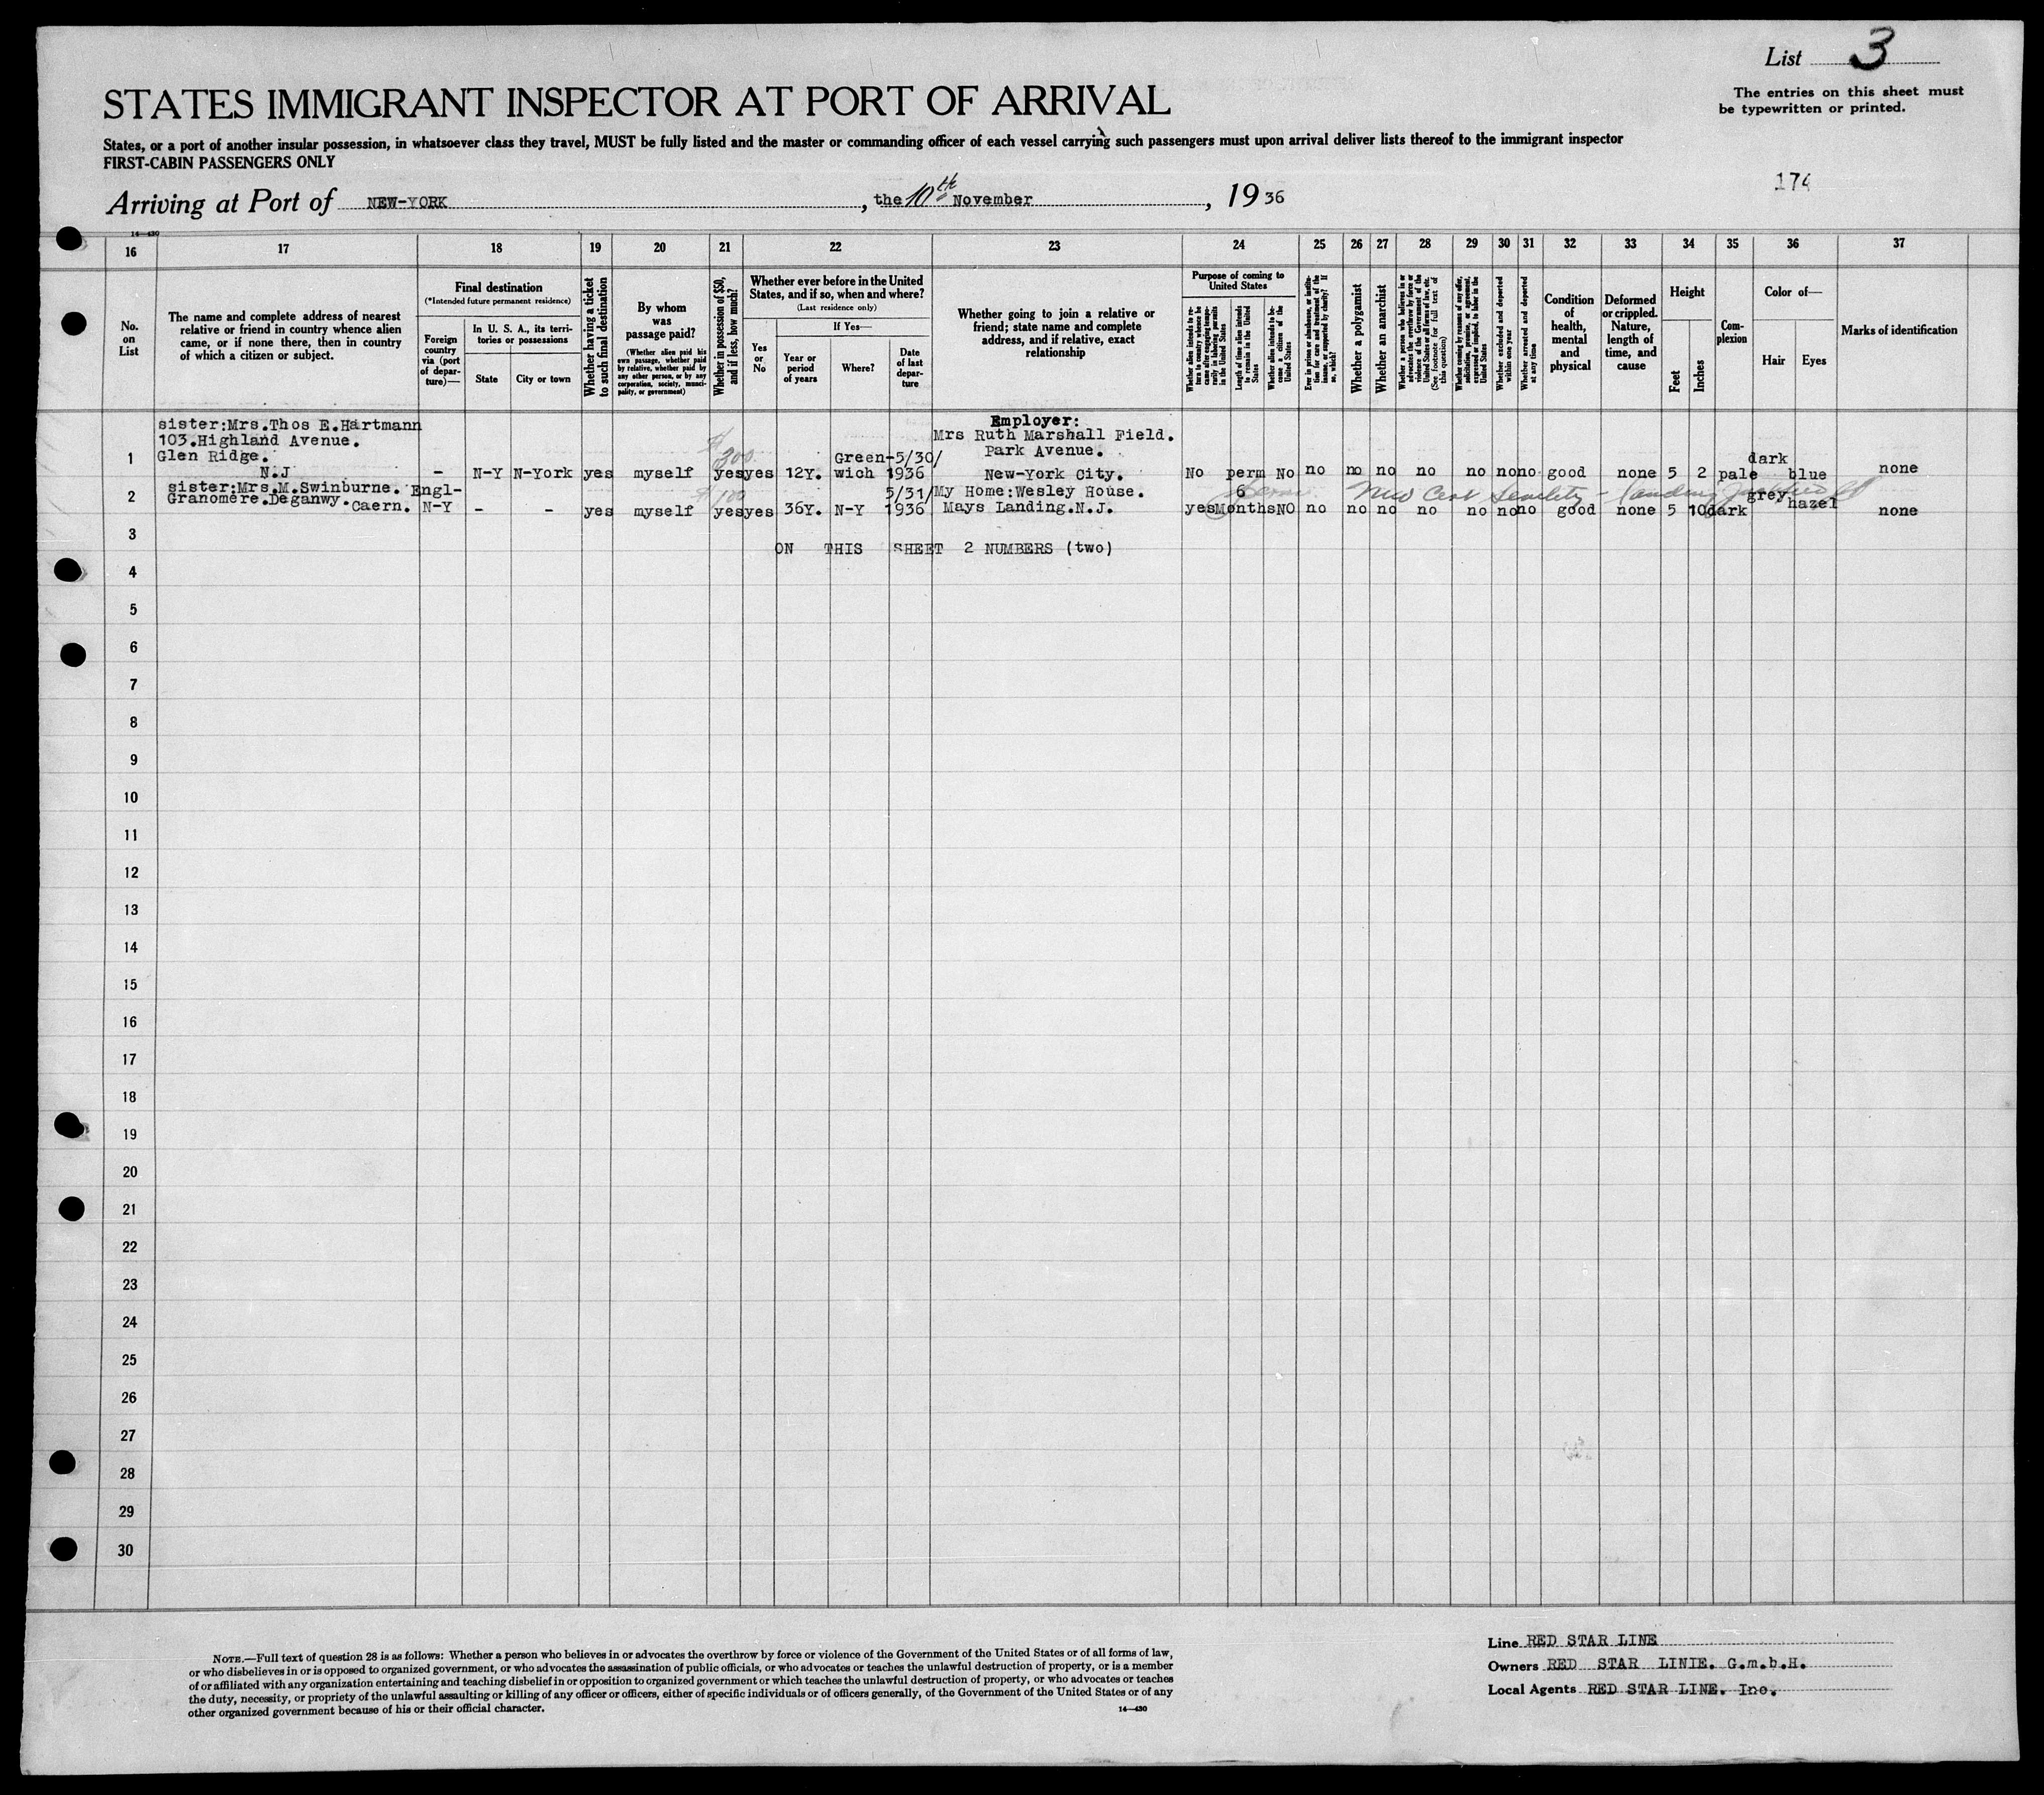 List 3
The entries on this sheet must
be typewritten or printed.
STATES IMMIGRANT INSPECTOR AT PORT OF ARRIVAL
States, or a port of another insular possession, in whatsoever class they travel, MUST be fully listed and the master or commanding officer of each vessel carrying such passengers must upon arrival deliver lists thereof to the immigrant inspector
FIRST-CABIN PASSENGERS ONLY
174
Arriving at Port of NEW-YORK, the 10th November, 1936
14—430
16 17 18 19 20 21 22 23 24 25 26 27 28 29 30 31 32 33 34 35 36 37
No.
on
List
The name and complete address of nearest
relative or friend in country whence alien
came, or if none there, then in country
of which a citizen or subject.
Final destination
(*Intended future permanent residence)
Foreign
country
via (port
of depar-
ture)—
In U. S. A., its terri-
tories or possessions
State
City or town
Whether having a ticket
to such final destination
By whom
was
passage paid?
(Whether alien paid his
own passage, whether paid
by relative, whether paid by
any other person, or by any
corporation, society, munici-
pality, or government)
Whether in possession of $50,
and if less, how much?
Whether ever before in the United
States, and if so, when and where?
(Last residence only)
Yes
or
No
If Yes—
Year or
period
of years
Where?
Date
of last
depar-
ture
Whether going to join a relative or
friend; state name and complete
address, and if relative, exact
relationship
Purpose of coming to
United States
Whether alien intends to re-
turn to country whence he
came after engaging tempo-
rarily in laboring pursuits
in the United States
Length of time alien intends
to remain in the United
States
Whether alien intends to be-
come a citizen of the
United States
Ever in prison or almshouse, or institu-
tion for care and treatment of the
insane, or supported by charity? If
so, which?
Whether a polygamist
Whether an anarchist
Whether a person who believes in or
advocates the overthrow by force or
violence of the Government of the
United States or all forms of law, etc.
(See footnote for full text of
this question)
Whether coming by reason of any offer,
solicitation, promise, or agreement,
expressed or implied, to labor in the
United States
Whether excluded and deported
within one year
Whether arrested and deported
at any time
Condition
of
health,
mental
and
physical
Deformed
or crippled.
Nature,
length of
time, and
cause
Height
Feet
Inches
Com-
plexion
Color of—
Hair
Eyes
Marks of identification
sister:Mrs.Thos E.Hartmann
103.Highland Avenue.
Glen Ridge.
N.J
1 – N-Y N-York yes myself $300 yes yes 12Y. Green-wich 5/30/1936
Employer:
Mrs Ruth Marshall Field.
Park Avenue.
New-York City.
No perm No no no no no no no no good none 5 2 pale dark blue none
sister:Mrs.M.Swinburne.
Granomere.Deganwy.
Caern.
2 Engl- N-Y – – yes myself $100 yes yes 36Y. N-Y 5/31/1936
My Home:Wesley House.
Mays Landing.N.J.
yes 6 Months NO no no no no no no no good none 5 10 dark grey hazel none
3
ON THIS SHEET 2 NUMBERS (two)
4
5
6
7
8
9
10
11
12
13
14
15
16
17
18
19
20
21
22
23
24
25
26
27
28
29
30
NOTE.—Full text of question 28 is as follows: Whether a person who believes in or advocates the overthrow by force or violence of the Government of the United States or of all forms of law,
or who disbelieves in or is opposed to organized government, or who advocates the assassination of public officials, or who advocates or teaches the unlawful destruction of property, or is a member
of or affiliated with any organization entertaining and teaching disbelief in or opposition to organized government or which teaches the unlawful destruction of property, or who advocates or teaches
the duty, necessity, or propriety of the unlawful assaulting or killing of any officer or officers, either of specific individuals or of officers generally, of the Government of the United States or of any
other organized government because of his or their official character.
14—430
Line RED STAR LINE
Owners RED STAR LINIE. G.m.b.H.
Local Agents RED STAR LINE. Inc.